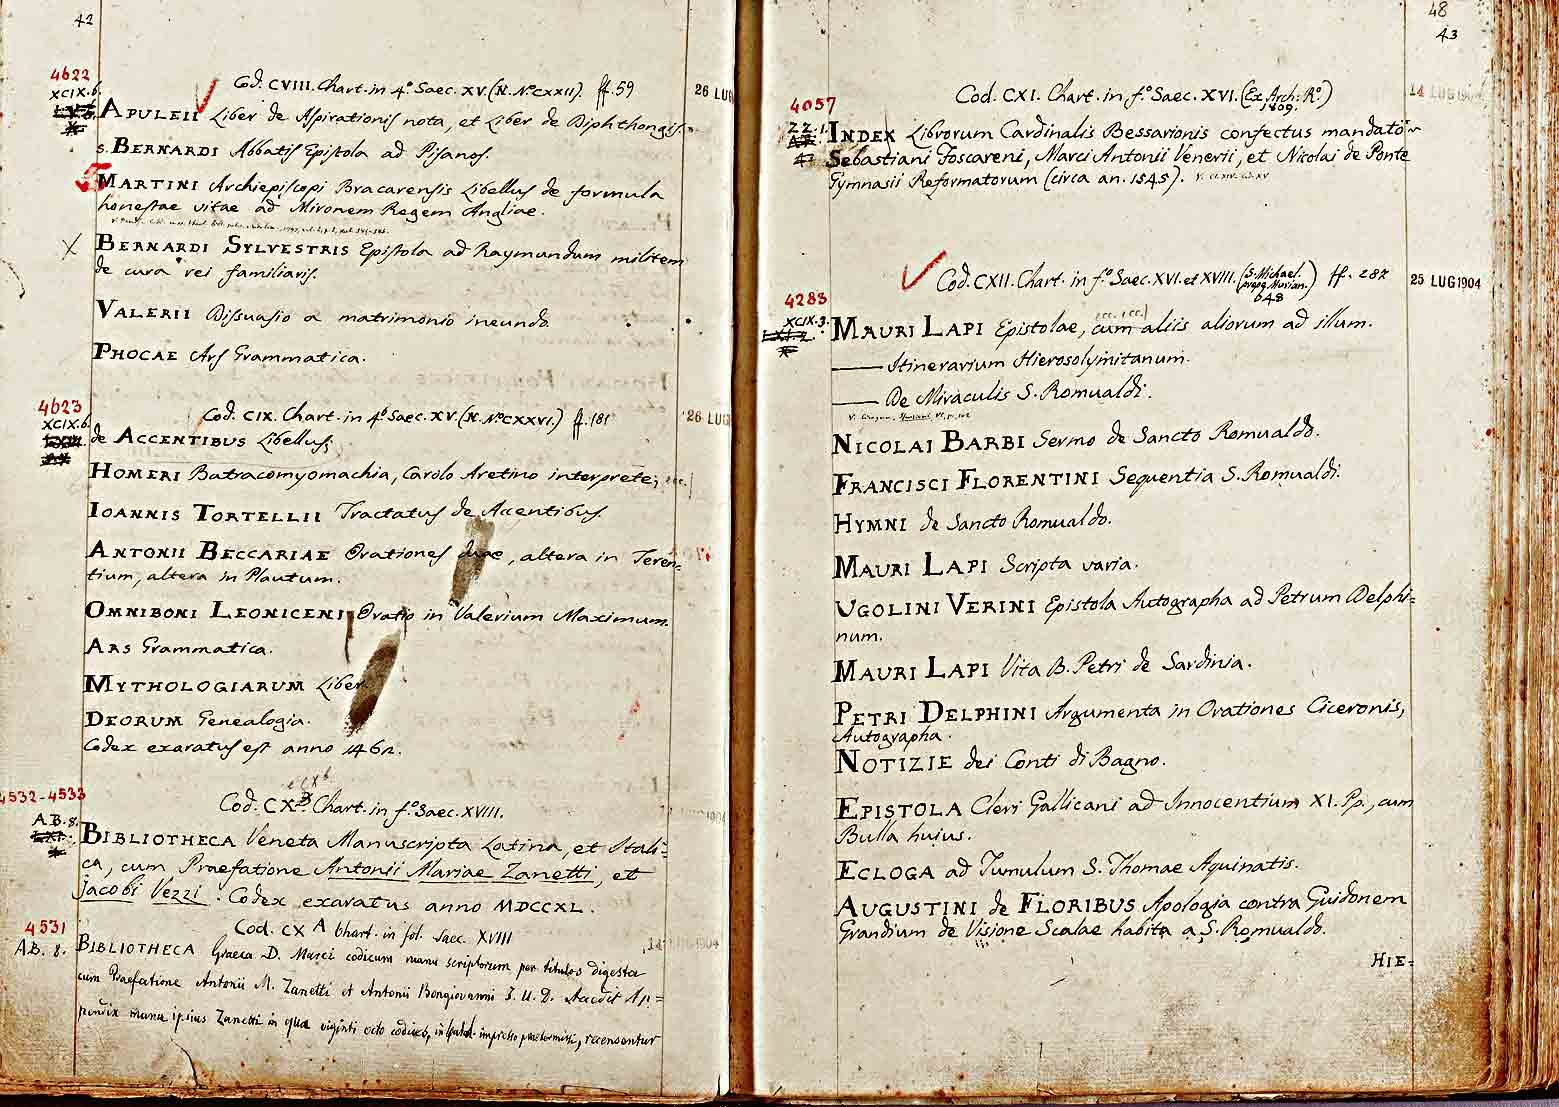 42
4622
XCIX.6.
Cod. CVIII. Chart. in 4.º Saec. XV. (N. Nº CXXII). ff. 59
26 LUG
APULEII Liber de Aspirationis nota, et Liber de Diphthongis.
S. BERNARDI Abbatis Epistola ad Pisanos.
MARTINI Archiepiscopi Bracarensis Libellus de formula
honestae vitae ad Mironem Regem Angliae.
X BERNARDI SYLVESTRIS Epistola ad Raymundum militem
de cura rei familiaris.
VALERII Dissuasio a matrimonio ineundo
PHOCAE Ars Grammatica.
4623
XCIX.6.
Cod. CIX. Chart. in 4.º Saec. XV. (N. Nº CXXVI.) ff. 181
26 LUG
de ACCENTIBUS Libellus;
HOMERI Batracomyomachia, Carolo Aretino interprete;
IOANNIS TORTELLII Tractatus de Accentibus.
ANTONII BECCARIAE Orationes duae, altera in Teren=
tium, altera in Plautum.
OMNIBONI LEONICENI Oratio in Valerium Maximum.
ARS Grammatica.
MYTHOLOGIARUM Liber
DEORUM Genealogia.
Codex exaratus est anno 1462.
4532-4533
A.B. 8.
Cod. CX B. Chart. in f.º Saec. XVIII.
BIBLIOTHECA Veneta Manuscripta Latina, et Itali=
ca, cum Praefatione Antonii Mariae Zanetti, et
Jacobi Vezzi. Codex exaratus anno MDCCXL.
4531
A.B. 8.
Cod. CX A Chart. in fol. Saec. XVIII
1904
BIBLIOTHECA Graeca D. Marci codicum manu scriptorum per titulos digesta
cum Praefatione Antonii M. Zanetti et Antonii Bongiovanni J. U. D. Accedit Ap=
pendix manu ipsius Zanetti in qua viginti octo codices, in impresso praetermissi, recensentur
48
43
4057
ZZ.1.
Cod. CXI. Chart. in f.º Saec. XVI. (Ex Arch: Rº.)
1809.
14 LUG 1904
INDEX Librorum Cardinalis Bessarionis confectus mandato
Sebastiani Foscareni, Marci Antonii Venerii, et Nicolai de Ponte
Gymnasii Reformatorum (circa an. 1545).
4283
XCIX.3.
Cod. CXII. Chart. in f.º Saec. XVI. et XVIII. (S. Michael.
prope Murian.
648) ff. 282
25 LUG 1904
MAURI LAPI Epistolae, cum aliis aliorum ad illum.
—— Itinerarium Hierosolymitanum.
—— De Miraculis S. Romualdi.
NICOLAI BARBI Sermo de Sancto Romualdo.
FRANCISCI FLORENTINI Sequentia S. Romualdi.
HYMNI de Sancto Romualdo.
MAURI LAPI Scripta varia.
UGOLINI VERINI Epistola Autographa ad Petrum Delphi=
num.
MAURI LAPI Vita B. Petri de Sardinia.
PETRI DELPHINI Argumenta in Orationes Ciceronis,
Autographa.
NOTIZIE dei Conti di Bagno.
EPISTOLA Cleri Gallicani ad Innocentium XI. Pp., cum
Bulla huius.
ECLOGA ad Tumulum S. Thomae Aquinatis.
AUGUSTINI de FLORIBUS Apologia contra Guidonem
Grandium de Visione Scalae habita a S. Romualdo.
HIE=